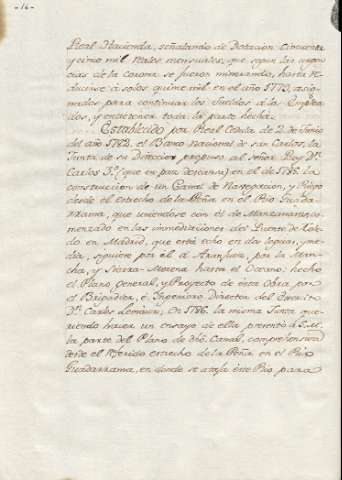 -16-
Real Hacienda, señalando de Dotacion Cincuenta
y cinco mil reales mensuales, que segun las urgen
cias de la Corona se fueron minorando, hasta re
ducirse á solos quince mil en el año 1770, asig
nados para continuar los Sueldos á los Emplea
dos, y entretener toda la parte hecha.
Establecido por Real Cedula de 2 de Junio
del año 1782 el Banco nacional de san Carlos, la
Junta de su Direccion propuso al señor Rey Dn.
Carlos 3º (que en paz descansa) en el de 1785 la
construccion de un Canal de Navegacion, y Riego
desde el estrecho de la Peña en el Rio Guada
rrama, que uniendose con el de Manzanares co
menzado en las inmediaciones del Puente de Tole
do en Madrid, que está solo en dos leguas, y me
dia, siguiese por el de Aranjuez, por la Man
cha, y Sierra-Morena hasta el Oceano: hecho
el Plano general, y Proyecto de esta Obra por
el Brigadier, é Ingeniero Director del Exercito
Dn. Carlos Lemaur, en 1786 la misma Junta que
riendo hacer un ensayo de ella presentó á S.M.
la parte del Plano de dho. Canal, comprehensiva
desde el referido estrecho de la Peña, en el Rio
Guadarrama, en donde se ataja este Rio para